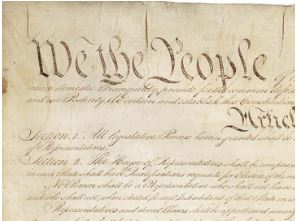 We the People of
insure domestic Tranquility, provide for the common defen
and our Posterity, do ordain and establish this Constitution
Articl
Section. 1. All legislative Powers herein granted shall be
of Representatives.
Section. 2. The House of Representatives shall be compos
in each State shall have Qualifications requisite for Electors of the
No Person shall be a Representative who shall not have
and who shall not, when elected, be an Inhabitant of that State in
Representatives and direct Taxes shall be apportioned among